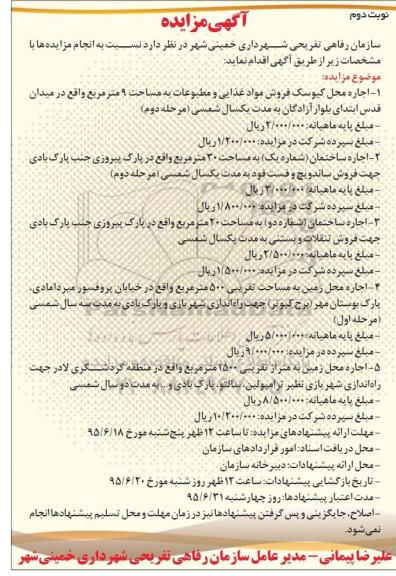 نوبت دوم
آگهی مزایده
سازمان رفاهی تفریحی شهرداری خمینی‌شهر در نظر دارد نسبت به انجام مزایده‌ها با
مشخصات زیر از طریق آگهی اقدام نماید:
موضوع مزایده:
۱-اجاره محل کیوسک فروش مواد غذایی و مطبوعات به مساحت ۹ مترمربع واقع در میدان
قدس ابتدای بلوار آزادگان به مدت یکسال شمسی (مرحله دوم)
- مبلغ پایه ماهیانه: ۲/۰۰۰/۰۰۰ ریال
- مبلغ سپرده شرکت در مزایده: ۱/۲۰۰/۰۰۰ ریال
۲-اجاره ساختمان (شماره یک) به مساحت ۲۰ مترمربع واقع در پارک پیروزی جنب پارک بادی
جهت فروش ساندویچ و فست فود به مدت یکسال شمسی (مرحله دوم)
- مبلغ پایه ماهیانه: ۳/۰۰۰/۰۰۰ ریال
- مبلغ سپرده شرکت در مزایده: ۱/۸۰۰/۰۰۰ ریال
۳-اجاره ساختمان (شماره دو) به مساحت ۲۰ مترمربع واقع در پارک پیروزی جنب پارک بادی
جهت فروش تنقلات و بستنی به مدت یکسال شمسی
- مبلغ پایه ماهیانه: ۲/۵۰۰/۰۰۰ ریال
- مبلغ سپرده شرکت در مزایده: ۱/۵۰۰/۰۰۰ ریال
۴- اجاره محل زمین به مساحت تقریبی ۵۰۰ مترمربع واقع در خیابان پروفسور میردامادی،
پارک بوستان مهر (برج کبوتر) جهت راه‌اندازی شهر بازی و پارک بادی به مدت سه سال شمسی
(مرحله اول)
- مبلغ پایه ماهیانه: ۵/۰۰۰/۰۰۰ ریال
- مبلغ سپرده در مزایده: ۹/۰۰۰/۰۰۰ ریال
۵-اجاره محل زمین به متراژ تقریبی ۱۵۰۰ مترمربع واقع در منطقه گردشگری لادر جهت
راه‌اندازی شهر بازی نظیر ترامپولین، سالتو، پارک بادی و... به مدت دو سال شمسی
- مبلغ پایه ماهیانه: ۸/۵۰۰/۰۰۰ ریال
- مبلغ سپرده شرکت در مزایده: ۱۰/۲۰۰/۰۰۰ ریال
- مهلت ارائه پیشنهادهای مزایده: تا ساعت ۱۲ ظهر پنج‌شنبه مورخ ۹۵/۶/۱۸
- محل دریافت اسناد: امور قراردادهای سازمان
- محل ارائه پیشنهادات: دبیرخانه سازمان
- تاریخ بازگشایی پیشنهادات: ساعت ۱۲ ظهر روز شنبه مورخ ۹۵/۶/۲۰
- مدت اعتبار پیشنهادها: روز چهارشنبه ۹۵/۶/۳۱
-اصلاح، جایگزینی و پس گرفتن پیشنهادها نیز در زمان مهلت و محل تسلیم پیشنهادها انجام
نمی‌شود.
علیرضا پیمانی – مدیر عامل سازمان رفاهی تفریحی شهرداری خمینی‌شهر